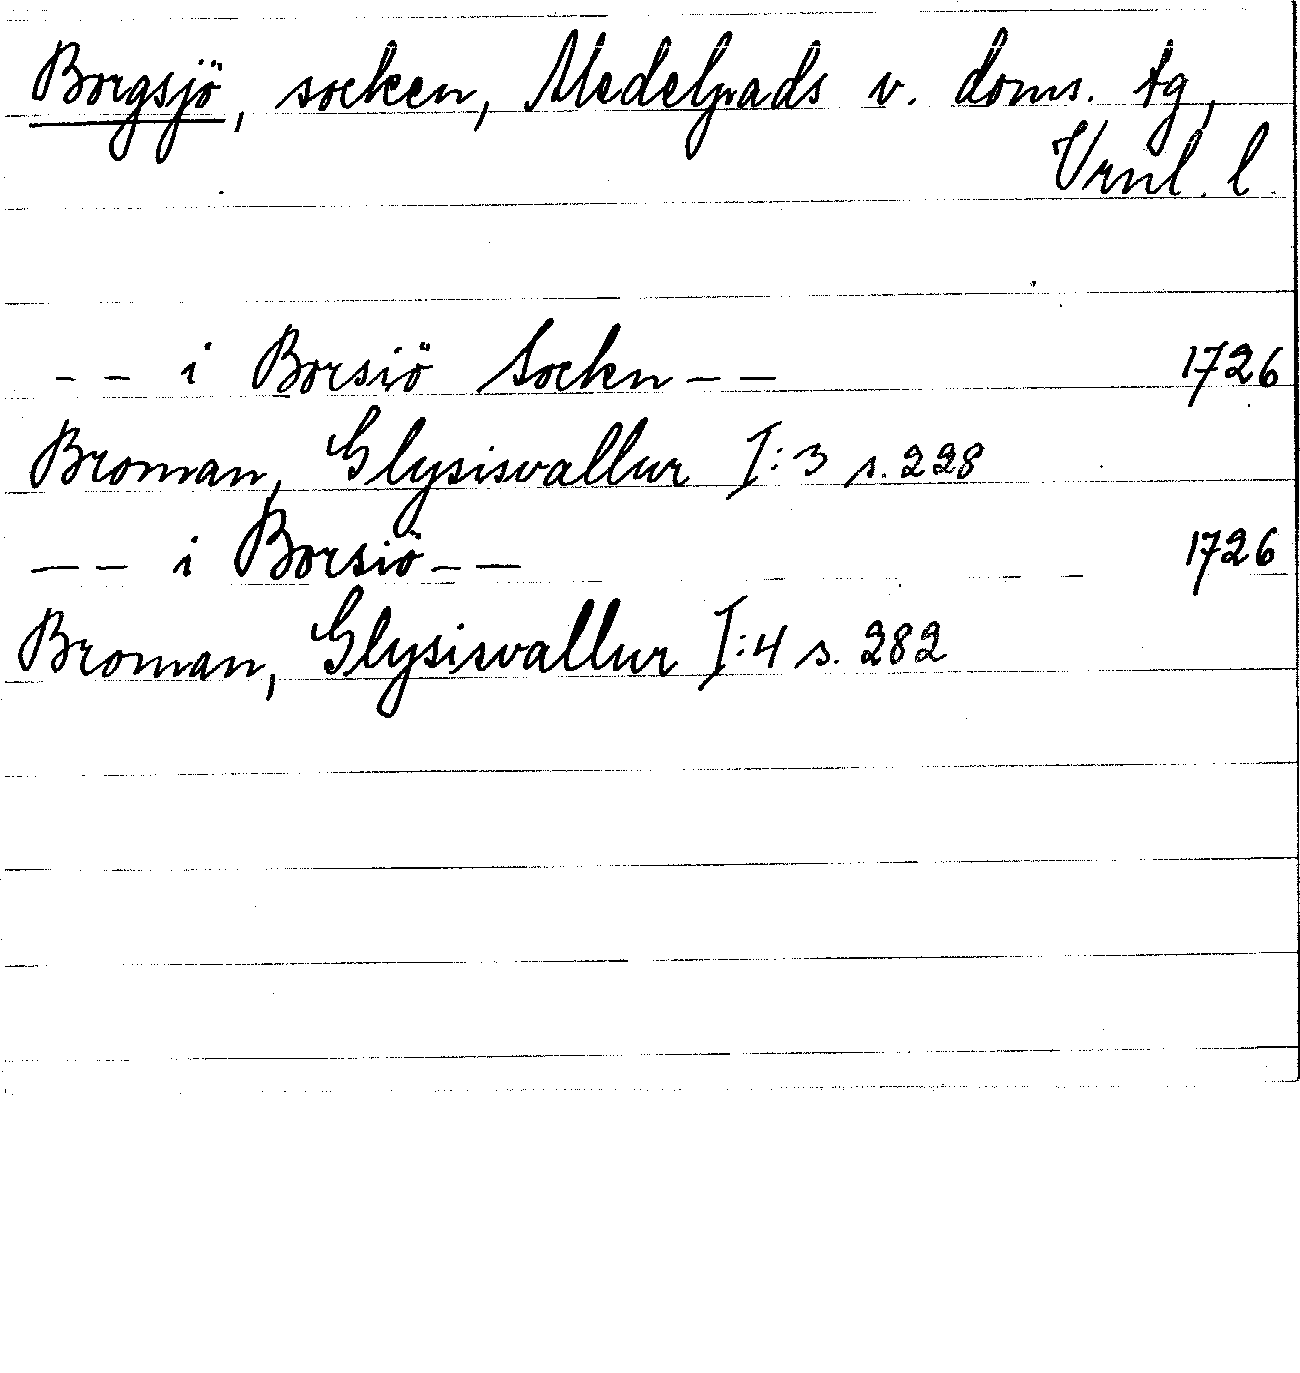 Borgsjö, socken, Medelpads v. doms. tg,
Vrnl. l.
-- i Borsiö Sockn -- 1726
Broman, Glysisvallur I:3 s. 228
-- i Borsiö -- 1726
Broman, Glysisvallur I:4 s. 282